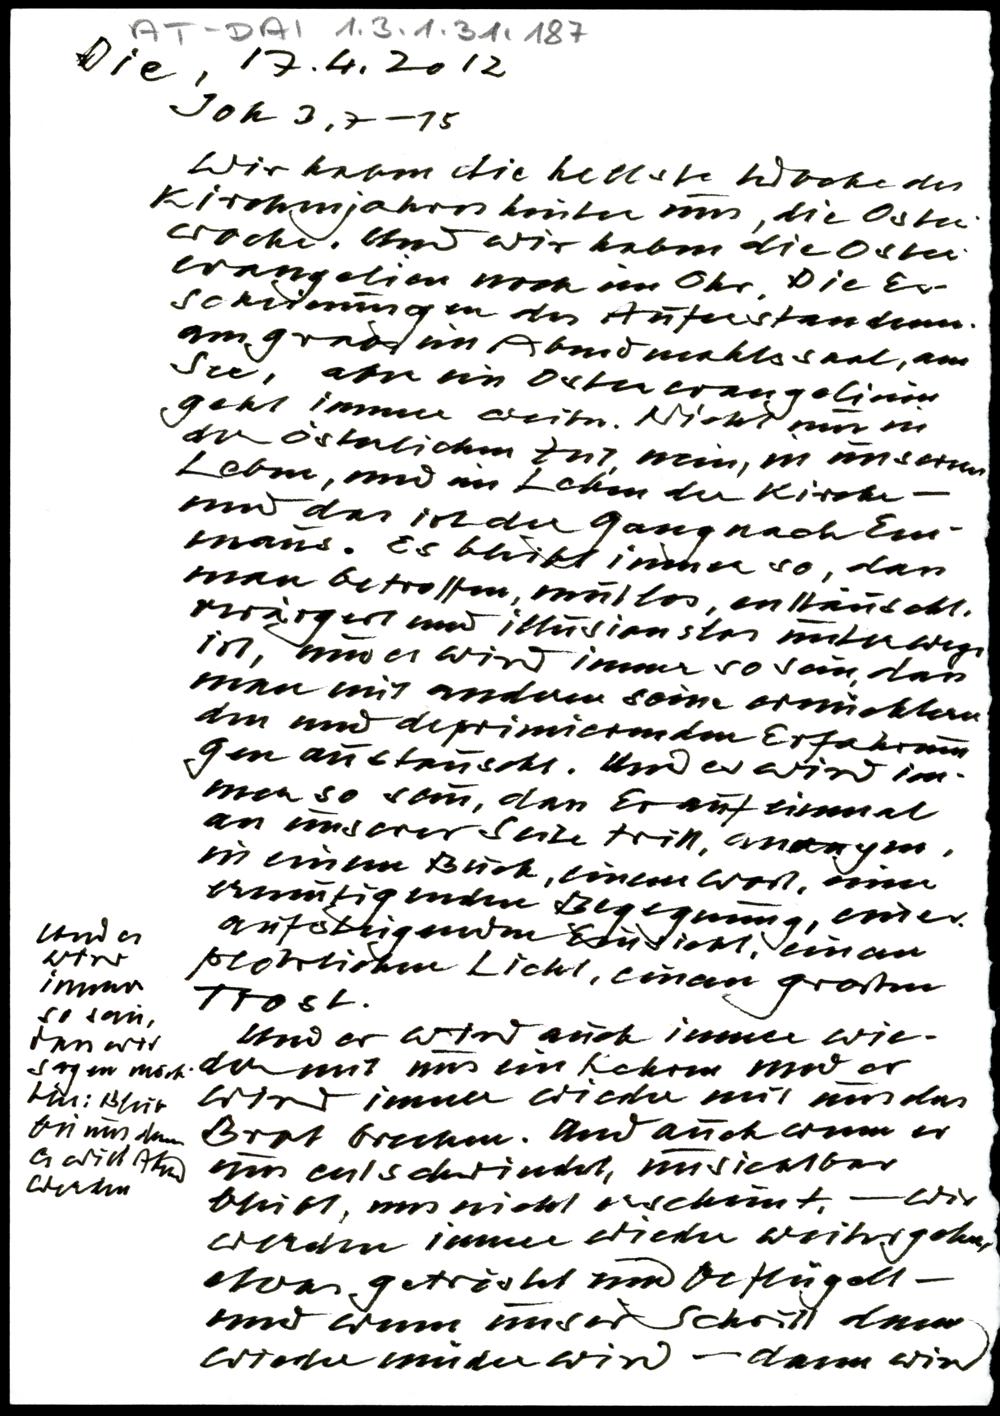 AT-DAI 1.3.1.31.187
Die, 17.4.2012
Joh 3,7-15
Wir haben die hellste Woche des
Kirchenjahres hinter uns, die Oster-
woche. Und wir haben die Oster-
evangelien noch im Ohr. Die Er-
scheinungen des Auferstandenen.
am Grab, im Abendmahlssaal, am
See, aber ein Osterevangelium
geht immer weiter. Nicht nur in
der österlichen Zeit, nein, in unserem
Leben, und im Leben der Kirche —
und das ist der Gang nach Em-
maus. Es bleibt immer so, dass
man betroffen, mutlos, enttäuscht.
verärgert und illusionslos unterwegs
ist, und es wird immer so sein, dass
man mit anderen seine ernüchtern
den und deprimierenden Erfahrun
gen austauscht. Und es wird im-
mer so sein, dass Er auf einmal
an unserer Seite tritt, anonym,
in einem Buch, einem Wort, einer
ermutigenden Begegnung, einer
aufsteigenden Einsicht, einem
plötzlichen Licht, einem großen
Trost.
Und er wird auch immer wie-
der mit uns einkehren und er
wird immer wieder mit uns das
Brot brechen. Und auch wenn er
uns entschwindet, unsichtbar
bleibt, uns nicht erscheint, — wir
werden immer wieder weitergehen,
etwas getröstet und beflügelt —
und wenn unser Schritt dann
wieder müder wird — dann wird
Und es
wird
immer
so sein,
dass wir
sagen möch-
ten: Bleib
bei uns denn
es will Abend
werden